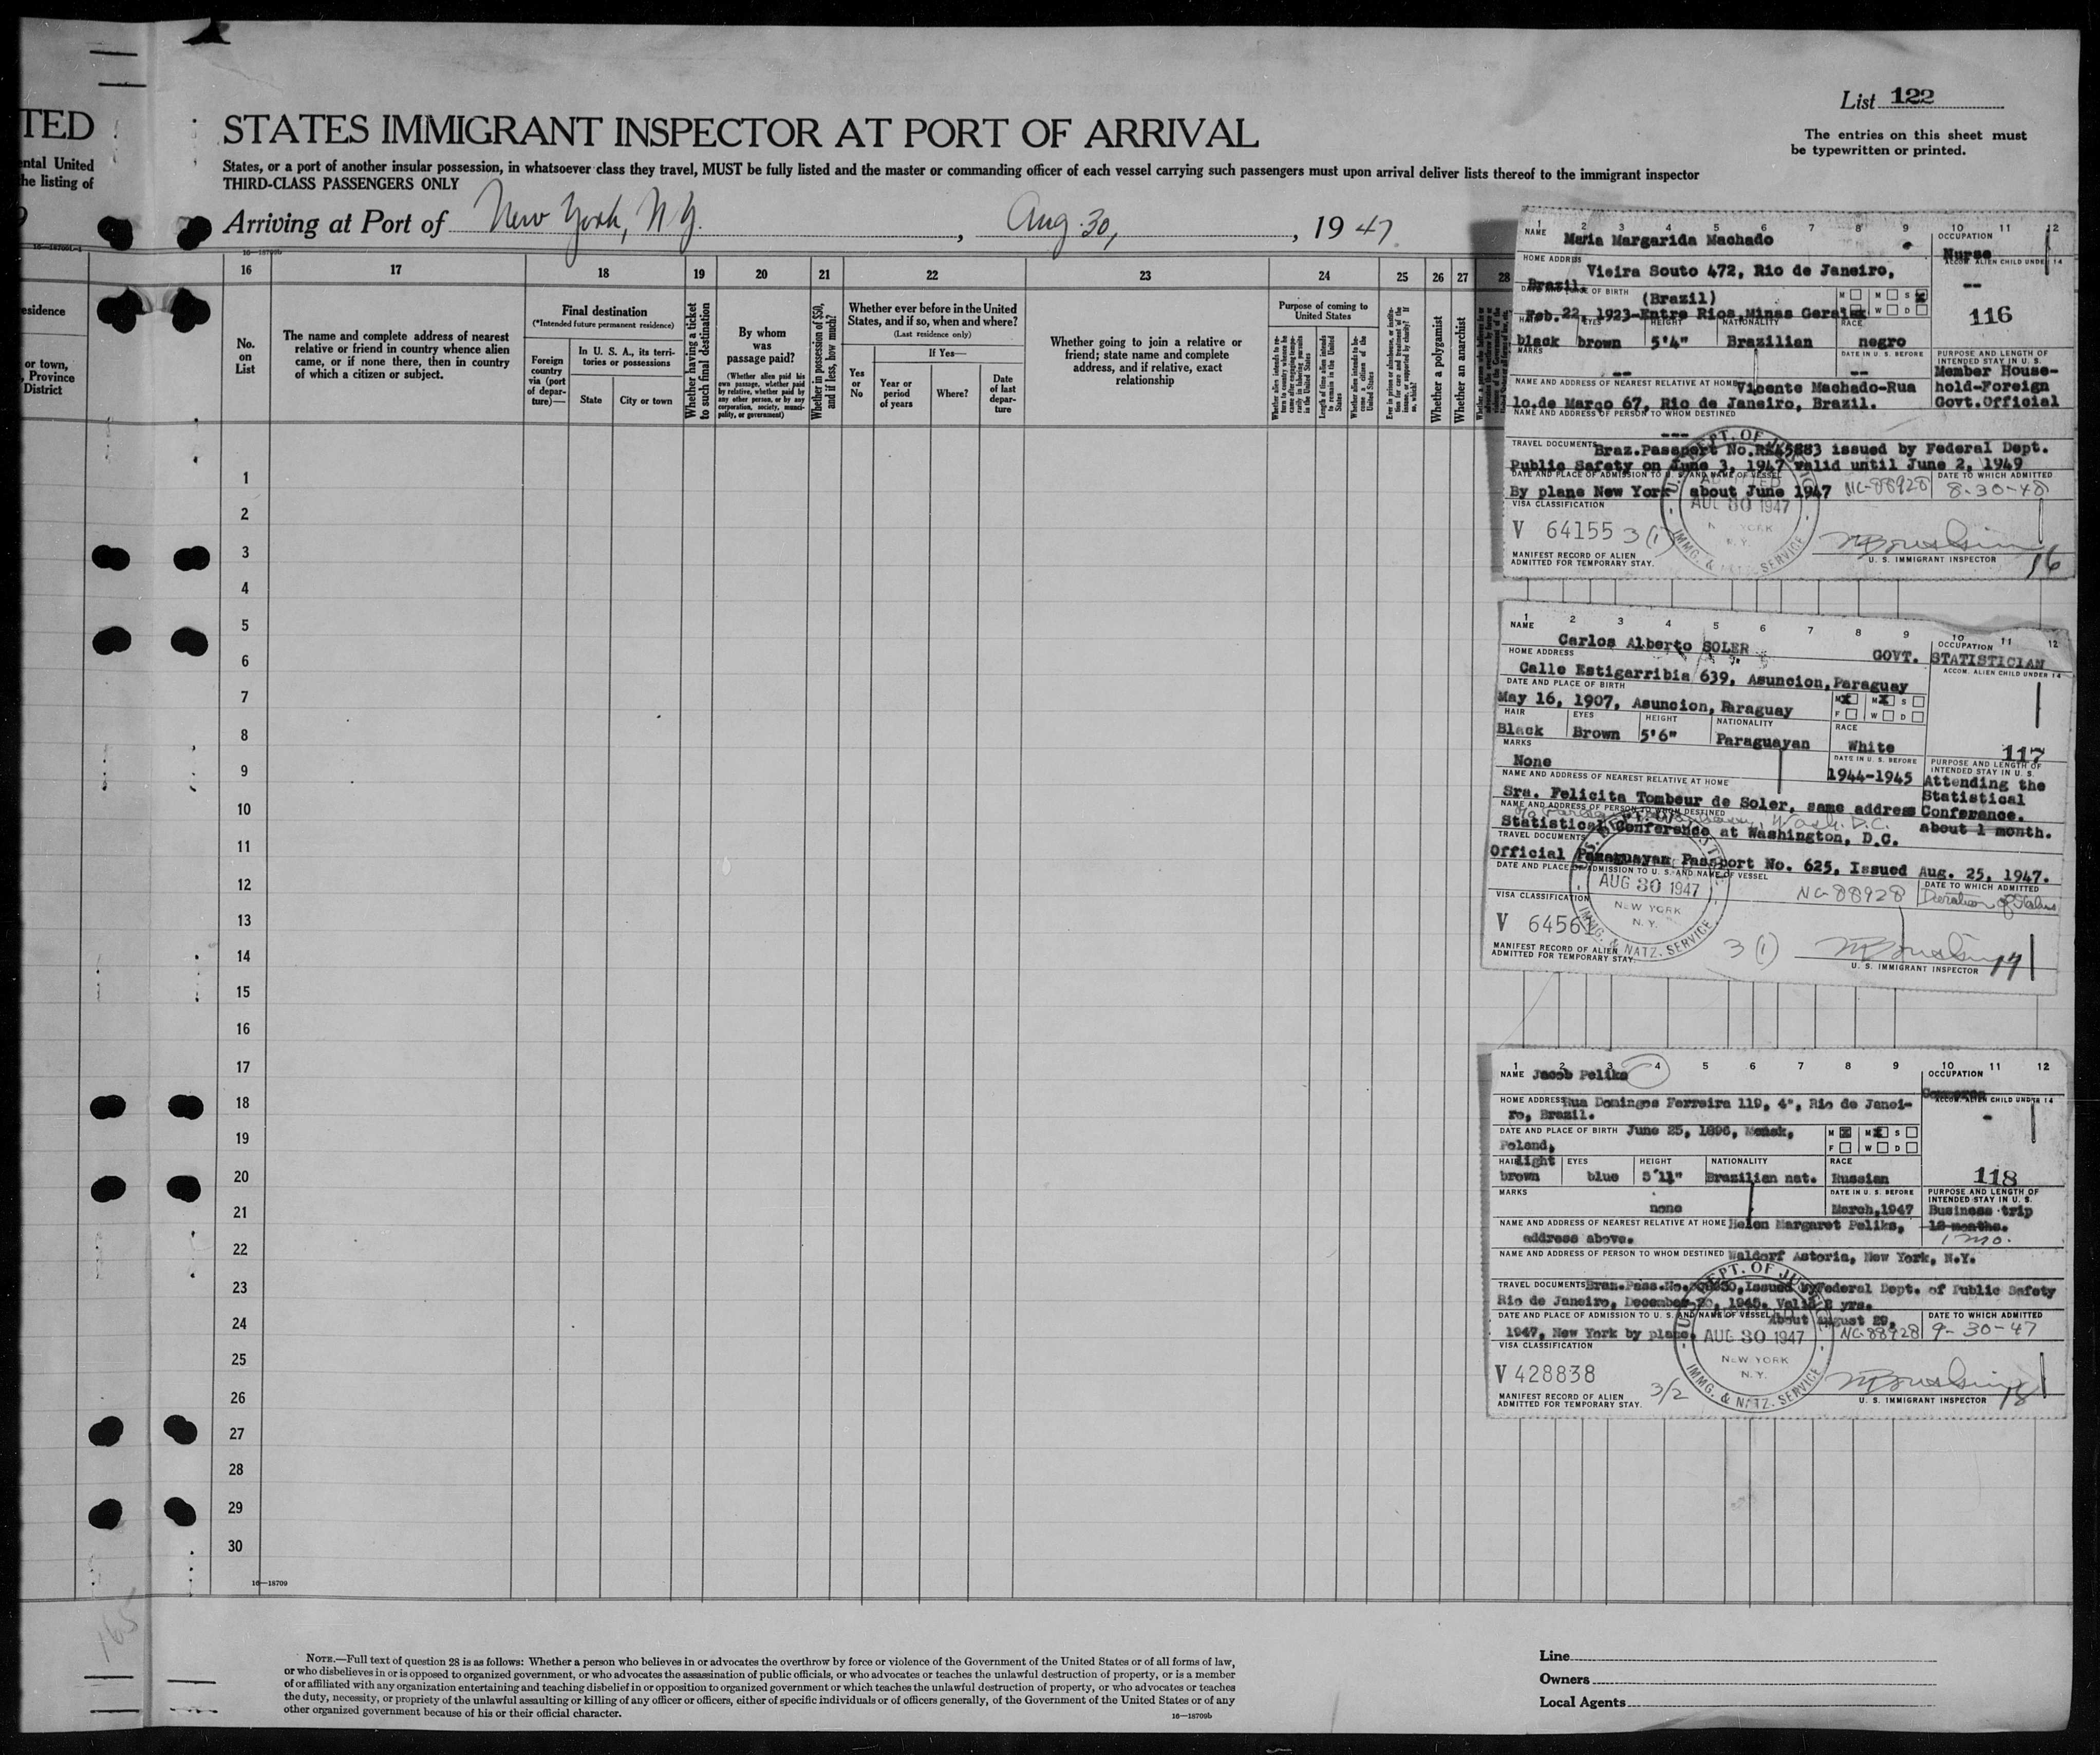 List 122
TED
STATES IMMIGRANT INSPECTOR AT PORT OF ARRIVAL
The entries on this sheet must
be typewritten or printed.
ental United
he listing of
States, or a port of another insular possession, in whatsoever class they travel, MUST be fully listed and the master or commanding officer of each vessel carrying such passengers must upon arrival deliver lists thereof to the immigrant inspector
THIRD-CLASS PASSENGERS ONLY
Arriving at Port of New York, N.Y. , Aug. 30, , 1947
16—18709b
esidence
or town,
, Province
District
16 17 18 19 20 21 22 23 24 25 26 27 28
No.
on
List
The name and complete address of nearest
relative or friend in country whence alien
came, or if none there, then in country
of which a citizen or subject.
Final destination
(*Intended future permanent residence)
Foreign
country
via (port
of depar-
ture)—
In U. S. A., its terri-
tories or possessions
State
City or town
Whether having a ticket
to such final destination
By whom
was
passage paid?
(Whether alien paid his
own passage, whether paid
by relative, whether paid by
any other person, or by any
corporation, society, munici-
pality, or government)
Whether in possession of $50,
and if less, how much?
Whether ever before in the United
States, and if so, when and where?
(Last residence only)
Yes
or
No
If Yes—
Year or
period
of years
Where?
Date
of last
depar-
ture
Whether going to join a relative or
friend; state name and complete
address, and if relative, exact
relationship
Purpose of coming to
United States
Length of time alien intends
to remain in the United
States
Whether alien intends to be-
come a citizen of the
United States
Whether a polygamist
Whether an anarchist
1
2
3
4
5
6
7
8
9
10
11
12
13
14
15
16
17
18
19
20
21
22
23
24
25
26
27
28
29
30
16—18709
165
1 2 3 4 5 6 7 8 9 10 11 12
NAME Maria Margarida Machado
OCCUPATION
Nurse
ACCOM. ALIEN CHILD UNDER 14
--
HOME ADDRESS Vieira Souto 472, Rio de Janeiro,
Brazil.
DATE AND PLACE OF BIRTH (Brazil)
Feb. 22, 1923-Entre Rios, Minas Gerais
M M S
F W D
116
HAIR EYES HEIGHT NATIONALITY RACE
black brown 5'4" Brazilian negro
MARKS
--
DATE IN U. S. BEFORE
--
PURPOSE AND LENGTH OF
INTENDED STAY IN U. S.
Member House-
hold-Foreign
Govt.Official
NAME AND ADDRESS OF NEAREST RELATIVE AT HOME Vicente Machado-Rua
1o.de Março 67, Rio de Janeiro, Brazil.
NAME AND ADDRESS OF PERSON TO WHOM DESTINED
---
TRAVEL DOCUMENTS Braz.Passport No. issued by Federal Dept.
Public Safety on June 3, 1947 valid until June 2, 1949
DATE AND PLACE OF ADMISSION TO U. S. AND NAME OF VESSEL
DATE TO WHICH ADMITTED
By plane New York about June 1947 NC-88928 8-30-48
VISA CLASSIFICATION
V 64155 3(1)
U. S. DEPT. OF JUSTICE
ADMITTED
AUG 30 1947
NEW YORK
N. Y.
IMMG. & NATZ. SERVICE
MANIFEST RECORD OF ALIEN
ADMITTED FOR TEMPORARY STAY.
U. S. IMMIGRANT INSPECTOR
16
1 2 3 4 5 6 7 8 9 10 11 12
NAME Carlos Alberto SOLER
OCCUPATION
GOVT. STATISTICIAN
ACCOM. ALIEN CHILD UNDER 14
HOME ADDRESS
Calle Estigarribia 639, Asuncion, Paraguay
DATE AND PLACE OF BIRTH
May 16, 1907, Asuncion, Paraguay
M M S
F W D
HAIR EYES HEIGHT NATIONALITY RACE
Black Brown 5'6" Paraguayan White
117
MARKS
None
DATE IN U. S. BEFORE
1944-1945
PURPOSE AND LENGTH OF
INTENDED STAY IN U. S.
Attending the
Statistical
Conference.
about 1 month.
NAME AND ADDRESS OF NEAREST RELATIVE AT HOME
Sra. Felicita Tombeur de Soler, same address
NAME AND ADDRESS OF PERSON TO WHOM DESTINED
Embassy, Wash. D.C.
Statistical Conference at Washington, D.C.
TRAVEL DOCUMENTS
Official Paraguayan Passport No. 625, Issued Aug. 25, 1947.
DATE AND PLACE OF ADMISSION TO U. S. AND NAME OF VESSEL
DATE TO WHICH ADMITTED
NC-88928 Duration of Status
VISA CLASSIFICATION
V 6456
AUG 30 1947
NEW YORK
N. Y.
IMMG. & NATZ. SERVICE
3(1)
MANIFEST RECORD OF ALIEN
ADMITTED FOR TEMPORARY STAY.
U. S. IMMIGRANT INSPECTOR
17
1 2 3 4 5 6 7 8 9 10 11 12
NAME Jacob Peliks
OCCUPATION
Commerce
ACCOM. ALIEN CHILD UNDER 14
-
HOME ADDRESS Rua Domingos Ferreira 119, 4°, Rio de Janei-
ro, Brazil.
DATE AND PLACE OF BIRTH June 25, 1896,
Poland,
M M S
F W D
HAIR EYES HEIGHT NATIONALITY RACE
light
brown blue 5'11" Brazilian nat. Russian
118
MARKS
none
DATE IN U. S. BEFORE
March,1947
PURPOSE AND LENGTH OF
INTENDED STAY IN U. S.
Business trip
12 months.
1 mo.
NAME AND ADDRESS OF NEAREST RELATIVE AT HOME Helen Margaret Peliks,
address above.
NAME AND ADDRESS OF PERSON TO WHOM DESTINED Waldorf Astoria, New York, N.Y.
TRAVEL DOCUMENTS Braz.Pass.No. Issued by Federal Dept. of Public Safety
Rio de Janeiro, December 1945. Valid 2 yrs.
DATE AND PLACE OF ADMISSION TO U. S. AND NAME OF VESSEL About August 29,
DATE TO WHICH ADMITTED
1947, New York by plane. NC-88928 9-30-47
VISA CLASSIFICATION
V 428838
U. S. DEPT. OF JUSTICE
AUG 30 1947
NEW YORK
N. Y.
IMMG. & NATZ. SERVICE
3/2
MANIFEST RECORD OF ALIEN
ADMITTED FOR TEMPORARY STAY.
U. S. IMMIGRANT INSPECTOR
18
NOTE.—Full text of question 28 is as follows: Whether a person who believes in or advocates the overthrow by force or violence of the Government of the United States or of all forms of law,
or who disbelieves in or is opposed to organized government, or who advocates the assassination of public officials, or who advocates or teaches the unlawful destruction of property, or is a member
of or affiliated with any organization entertaining and teaching disbelief in or opposition to organized government or which teaches the unlawful destruction of property, or who advocates or teaches
the duty, necessity, or propriety of the unlawful assaulting or killing of any officer or officers, either of specific individuals or of officers generally, of the Government of the United States or of any
other organized government because of his or their official character.
16—18709b
Line
Owners
Local Agents